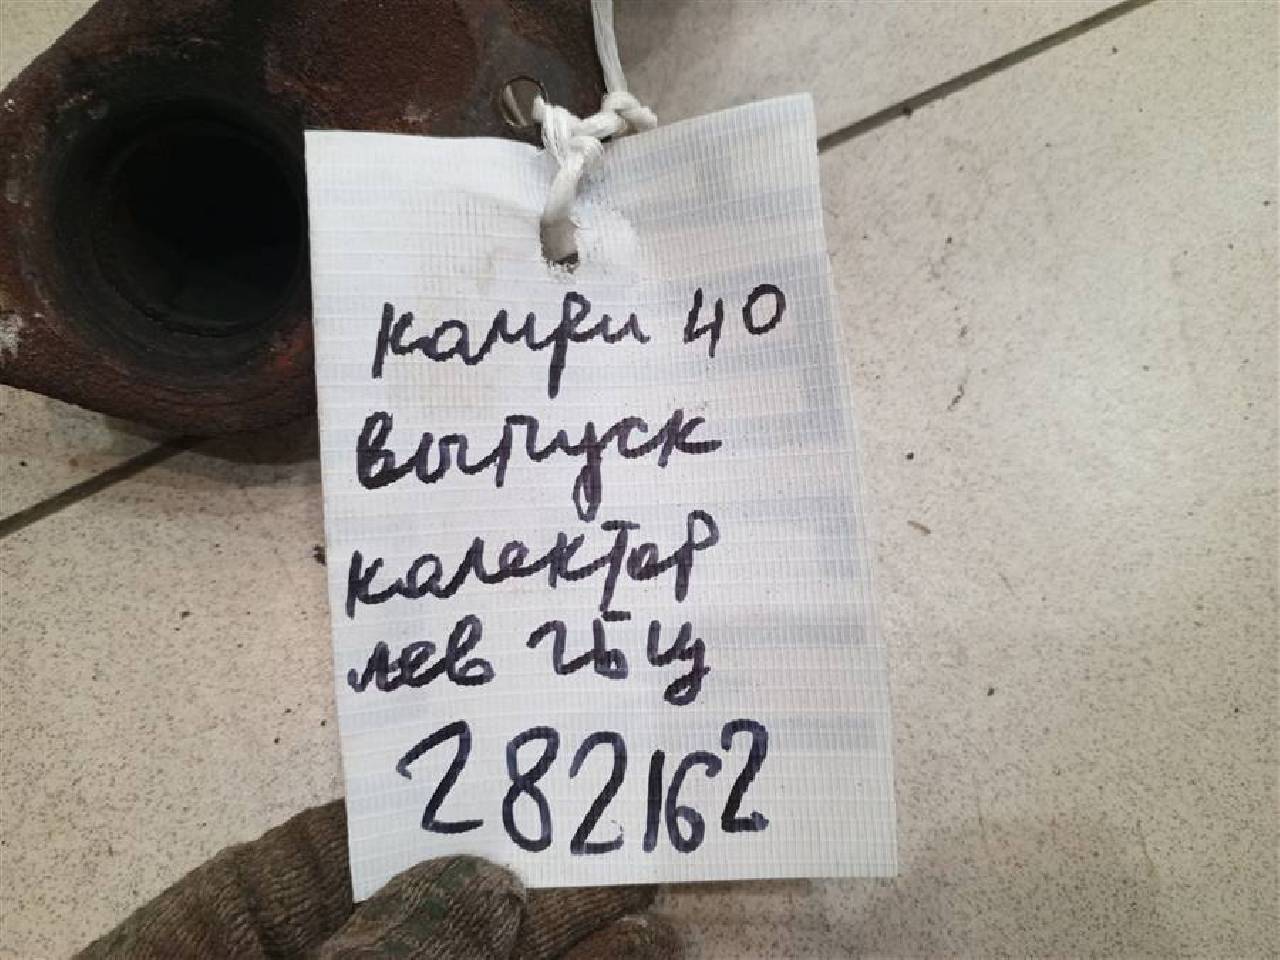 камри 40
выпуск
калектор
лев гбц
282162